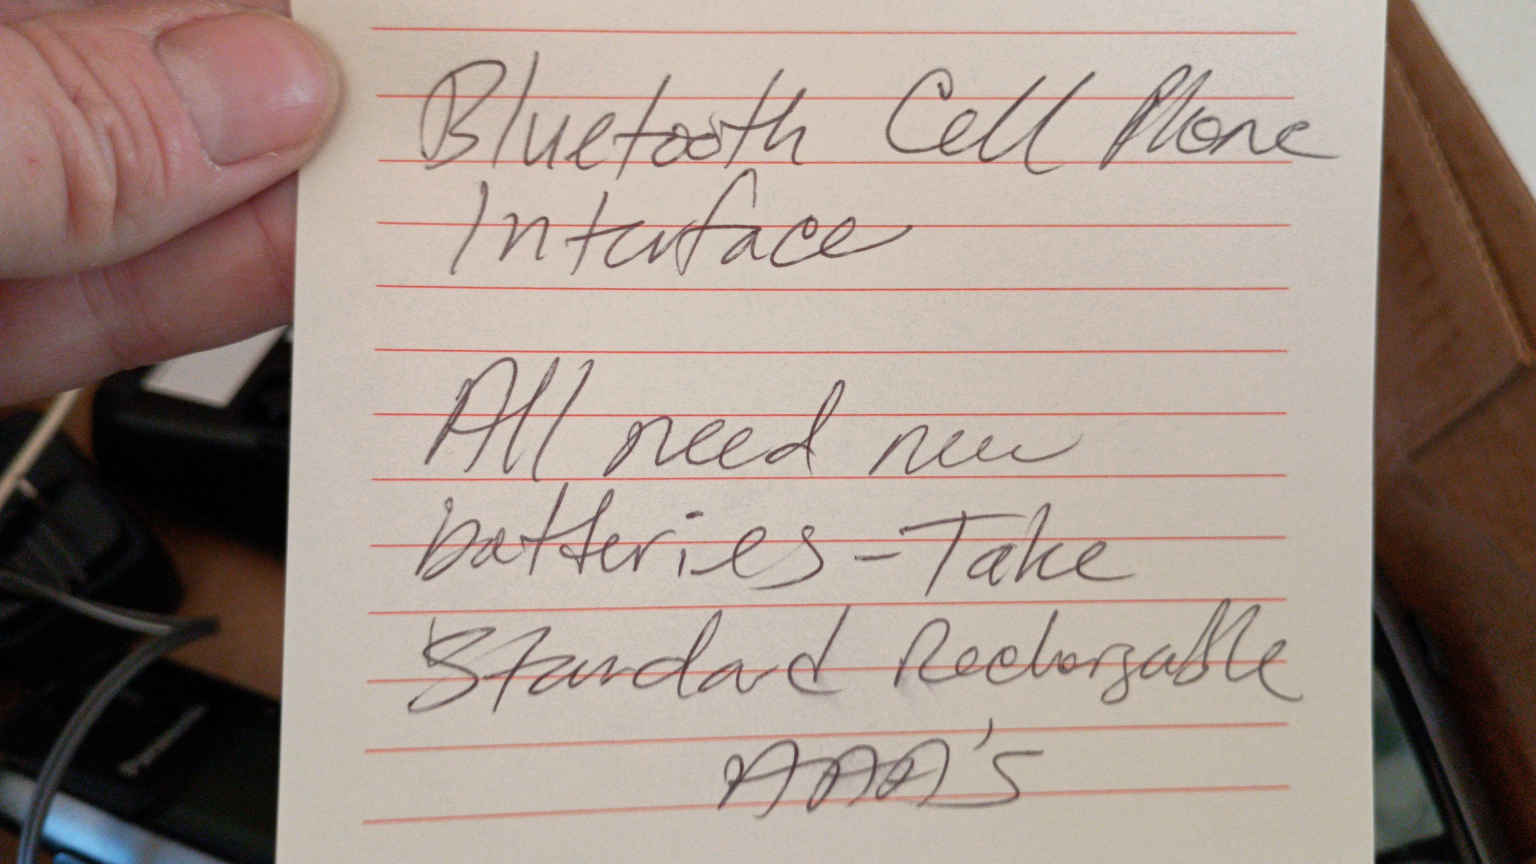 Bluetooth Cell Phone
Interface
All need new
batteries - Take
Standard Rechargable
AAA's
Panasonic